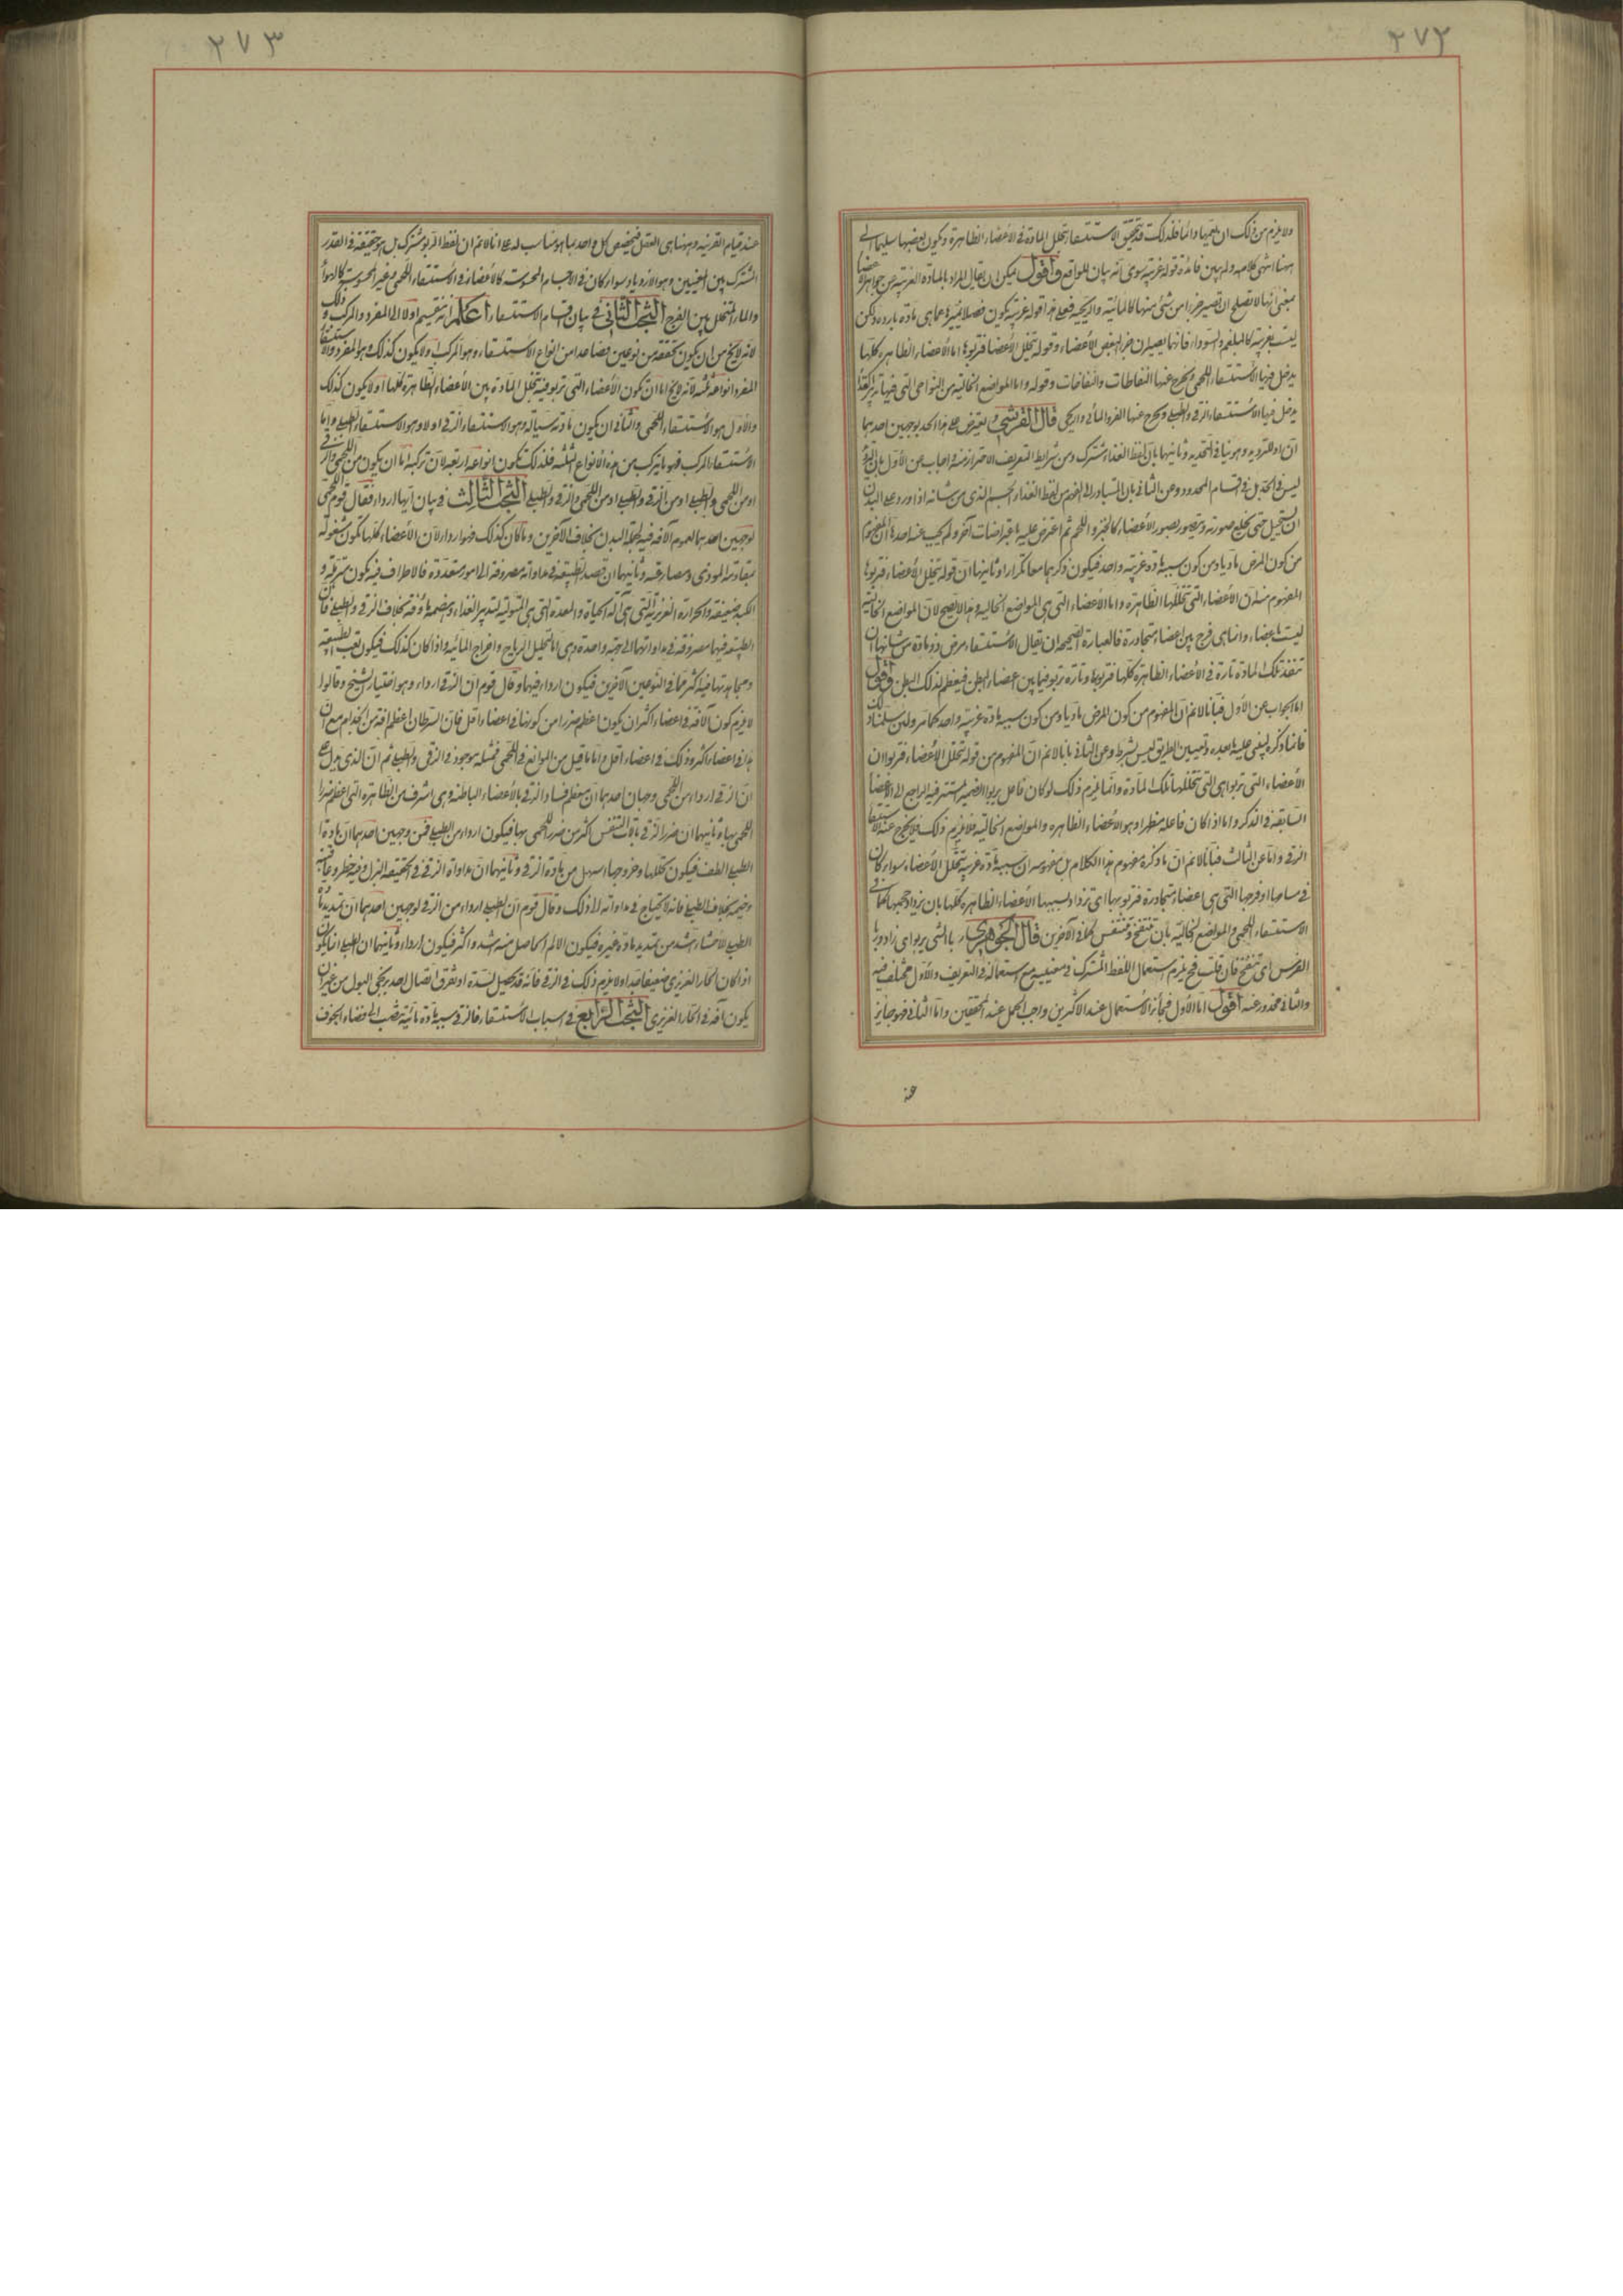 ٢٧٢
ولا يلزم من ذلك ان يعمها دائما فلذلك قد يتحقق الاستسقاء بتخلل المادة فى الأعضاء الظاهرة ويكون بعضها سليما الى
ههنا انتهى كلامه ولم يبين فائدة قوله غريبة سوى انه بيان للواقع واقول يمكن ان يقال المراد بالمادة الغريبة عن جواهر الأعضاء
بمعنى انها لا تصلح ان تصير جزءا من شئ منها كالمائية والريحية فعلى هذا قوله غريبة يكون فصلا مميزا عما هى مادة باردة ولكن
ليست بغريبة كالبلغم والسوداء فانهما يصيران جزءا لبعض الأعضاء وقوله تخلل الأعضاء فتربو بها اما الأعضاء الظاهرة كلها
يدخل فيها الاستسقاء اللحمى ويخرج عنها النفاطات والنفاخات وقوله واما المواضع الخالية من النواحى التى فيها تدبير الغذاء
يدخل فيها الاستسقاء الزقى والطبلى ويخرج عنها القرو المائى والريحى قال القرشى ويعترض على هذا الحد بوجهين احدهما
ان او للترديد وهو ينافى التحديد وثانيهما بان لفظ الغذاء مشترك ومن شرايط التعريف الاحتراز منه واجاب عن الأول بان
ليس فى الحد بل فى اقسام المحدود وعن الثانى بان المتبادر الى الفهم من لفظ الغذاء الجسم الذى من شانه اذا ورد على البدن
ان يستحيل حتى يخلع صورته ويتصور بصور الأعضاء كالخبز واللحم ثم اعترض عليه باعتراضات آخر ولم يجب عنه احدها ان المفهوم
من كون المرض ماديا ومن كون سببه مادة غريبة واحد فيكون ذكرهما معا تكرارا وثانيها ان قوله تتخلل الأعضاء فتربو بها
المفهوم منه ان الأعضاء التى تتخللها الظاهرة واما الأعضاء التى هى المواضع الخالية وهذا لا يصح لان المواضع الخالية
ليست باعضاء وانما هى فرج بين اعضاء متجاورة فالعبارة الصحيحة ان يقال الاستسقاء مرض ذو مادة من شانها ان
تنفذ تلك المادة تارة فى الأعضاء الظاهرة كلها فتربو بها وتارة تربو فيما بين اعضاء البطن فيعظم لذلك البطن اقول
اما الجواب عن الأول فبانا لا نم ان المفهوم من كون المرض ماديا ومن كون سببه مادة غريبة واحد كما مر ولئن سلمنا ذلك
فانما ذكره ليبنى عليه ما بعده وتعيين الطريق ليس بشرط وعن الثانى بانا لا نم ان المفهوم من قوله تتخلل الأعضاء فتربو ان
الأعضاء التى تربو هى التى تتخللها تلك المادة وانما يلزم ذلك لو كان فاعل يربو الضمير المستتر فيه الراجع الى الأعضاء
السابقة فى الذكر واما اذا كان فاعله مظهرا وهو الأعضاء الظاهرة والمواضع الخالية فلا يلزم ذلك فلا يخرج عنه الاستسقاء
الزقى واما عن الثالث فبانا لا نم ان ما ذكره مفهوم هذا الكلام بل مفهومه ان سببه مادة غريبة تتخلل الأعضاء سواء كان
فى مسامها او فرجها التى هى اعضاء متجاورة فتربو بها اى تزداد بسببها الأعضاء الظاهرة كلها بان يزداد حجمها كما فى
الاستسقاء اللحمى والمواضع الخالية بان تنتفخ وتنتفش كما فى الآخرين قال الجوهرى ربا الشئ يربو اى زاد وربا
الفرس اى تنفخ فان قلت فح يلزم استعمال اللفظ المشترك فى معنييه مع استعماله فى التعريف والأول مختلف فيه
والثانى محذور عنه اقول اما الأول فجائز الاستعمال عند الاكثرين وواجب الحمل عند المحققين واما الثانى فهو جايز
٢٧٣
عند قيام القرينة وههنا هى العقل فيخصص كل واحد بما هو مناسب له على انا لا نم ان لفظ الربو مشترك بل هو حقيقة فى القدر
المشترك بين المعنيين وهو الازدياد سواء كان فى الاجسام المحسوسة كالأعضاء فى الاستسقاء اللحمى او غير المحسوسة كالهواء
والماء المتخلل بين الفرج البحث الثانى فى بيان اقسام الاستسقاء اعلم انه ينقسم اولا الى المفرد والمركب وذلك
لانه لا يخ من ان يكون تحققه من نوعين فصاعدا من انواع الاستسقاء وهو المركب او لا يكون كذلك وهو المفرد والاستسقاء
المفرد انواعه ثلثة لانه لا يخ اما ان تكون الأعضاء التى تربو فيه بتخلل المادة بين الأعضاء الظاهرة كلها او لا يكون كذلك
والأول هو الاستسقاء اللحمى والثانى ان يكون مادته سيالة وهو الاستسقاء الزقى او لا وهو الاستسقاء الطبلى واما
الاستسقاء المركب فهو ما يتركب من هذه الانواع الثلثة فلذلك تكون انواعه اربعة لان تركبه اما ان يكون من اللحمى والزقى
او من اللحمى والطبلى او من الزقى والطبلى او من اللحمى والزقى والطبلى البحث الثالث فى بيان ايها اردا فقال قوم اللحمى
لوجهين احدهما لعموم الآفة فيه لجملة البدن بخلاف الآخرين وما كان كذلك فهو اردا ولان الأعضاء كلها تكون مشغولة
بمقاومة الموذى ومصارعته وثانيهما ان قصد الطبيعة فى مداواته مصروفة الى امور متعددة فالاطراف فيه يكون مترهلة و
الكبد ضعيفة والحرارة الغريزية التى هى آلة الحياة والمعدة التى هى المتولية لتدبير الغذاء وهضمه ماؤفة بخلاف الزقى والطبلى فان
الطبيعة فيهما مصروفة فى مداواتهما الى جهة واحدة وهى اما تحليل الرياح واخراج المائية واذا كان كذلك فيكون تعب الطبيعة
ومجاهدتها فيه اكثر مما فى النوعين الآخرين فيكون اردا منهما وقال قوم ان الزقى اردا وهو اختيار الشيخ وقالوا
لا يلزم كون الآفة فى اعضاء اكثر ان يكون اعظم ضررا من كونها فى اعضاء اقل فان السرطان اعظم آفة من الجذام مع ان
هذا فى اعضاء اكثر وذلك فى اعضاء اقل واما ما قيل من الموانع فى اللحمى فمثله موجود فى الزقى والطبلى ثم ان الذى يدل على
ان الزقى اردا من اللحمى وجهان احدهما ان معظم فساد الزقى بالأعضاء الباطنة وهى اشرف من الظاهرة التى اعظم ضرر
اللحمى بها وثانيهما ان ضرر الزقى بآلات التنفس اكثر من ضرر اللحمى بها فيكون اردا ومن الطبلى فمن وجهين احدهما ان مادة
الطبلى الطف فيكون تحللها وخروجها اسهل من مادة الزقى وثانيهما ان مداواة الزقى فى الحقيقة البزل وفيه خطر وعاقبة
وخيمة بخلاف الطبلى فانه لا يحتاج فى مداواته الى ذلك وقال قوم ان الطبلى اردا من الزقى لوجهين احدهما ان تمديد مادة
الطبلى للأحشاء اشد من تمديد مادة غيره فيكون الالم الحاصل منه اشد واكثر فيكون اردا وثانيهما ان الطبلى انما يكون
اذا كان الحار الغريزى ضعيفا جدا ولا يلزم ذلك فى الزقى فانه قد يحصل لسدة او تفرق اتصال احد مجرى البول من غير ان
يكون آفة فى الحار الغريزى البحث الرابع فى اسباب الاستسقاء فالزقى سببه مادة مائية تنصب الى فضاء الجوف